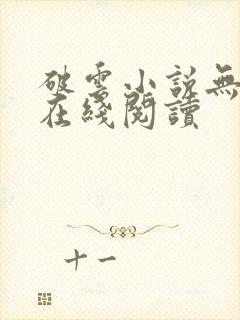 破雲小說無
在綫閱讀
十一